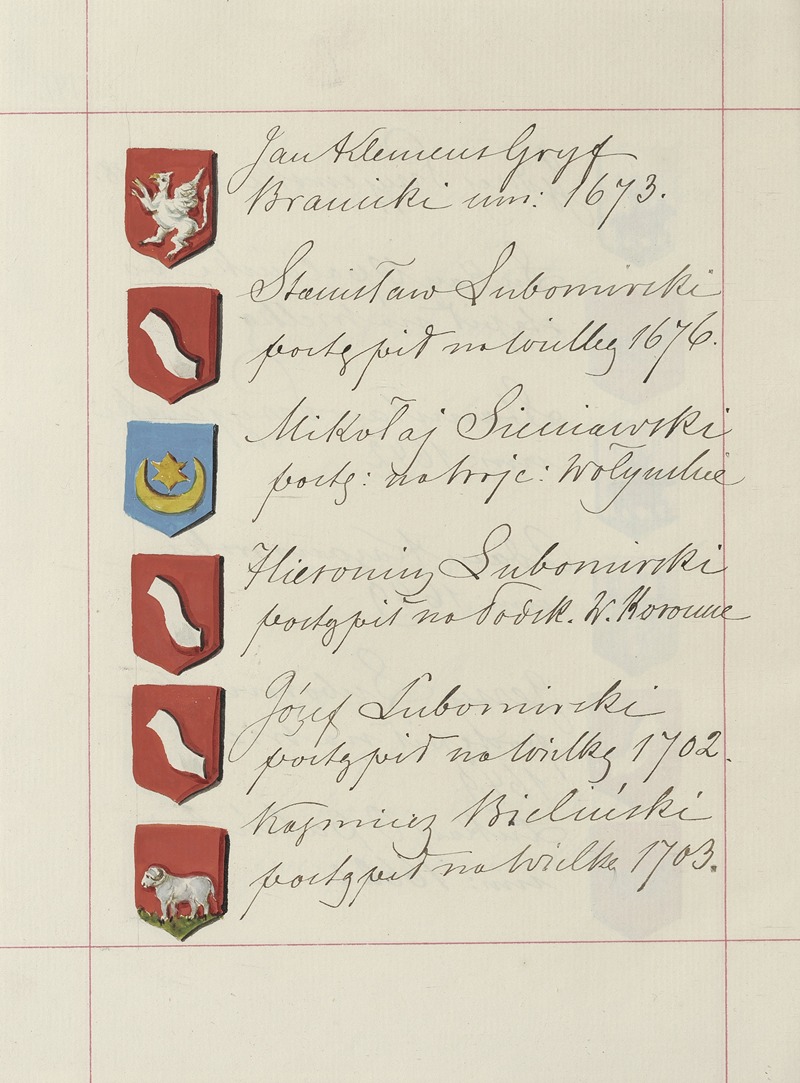 Jan Klemens Gryf
Branicki um: 1673.
Stanisław Lubomirski
postąpił na wielką 1676.
Mikołaj Sieniawski
postą: na woje: Wołyńskie
Hieronim Lubomirski
postąpił na Podsk. W. Koronne
Józef Lubomirski
postąpił na wielką 1702.
Kazmierz Bieliński
postąpił na wielką 1703.